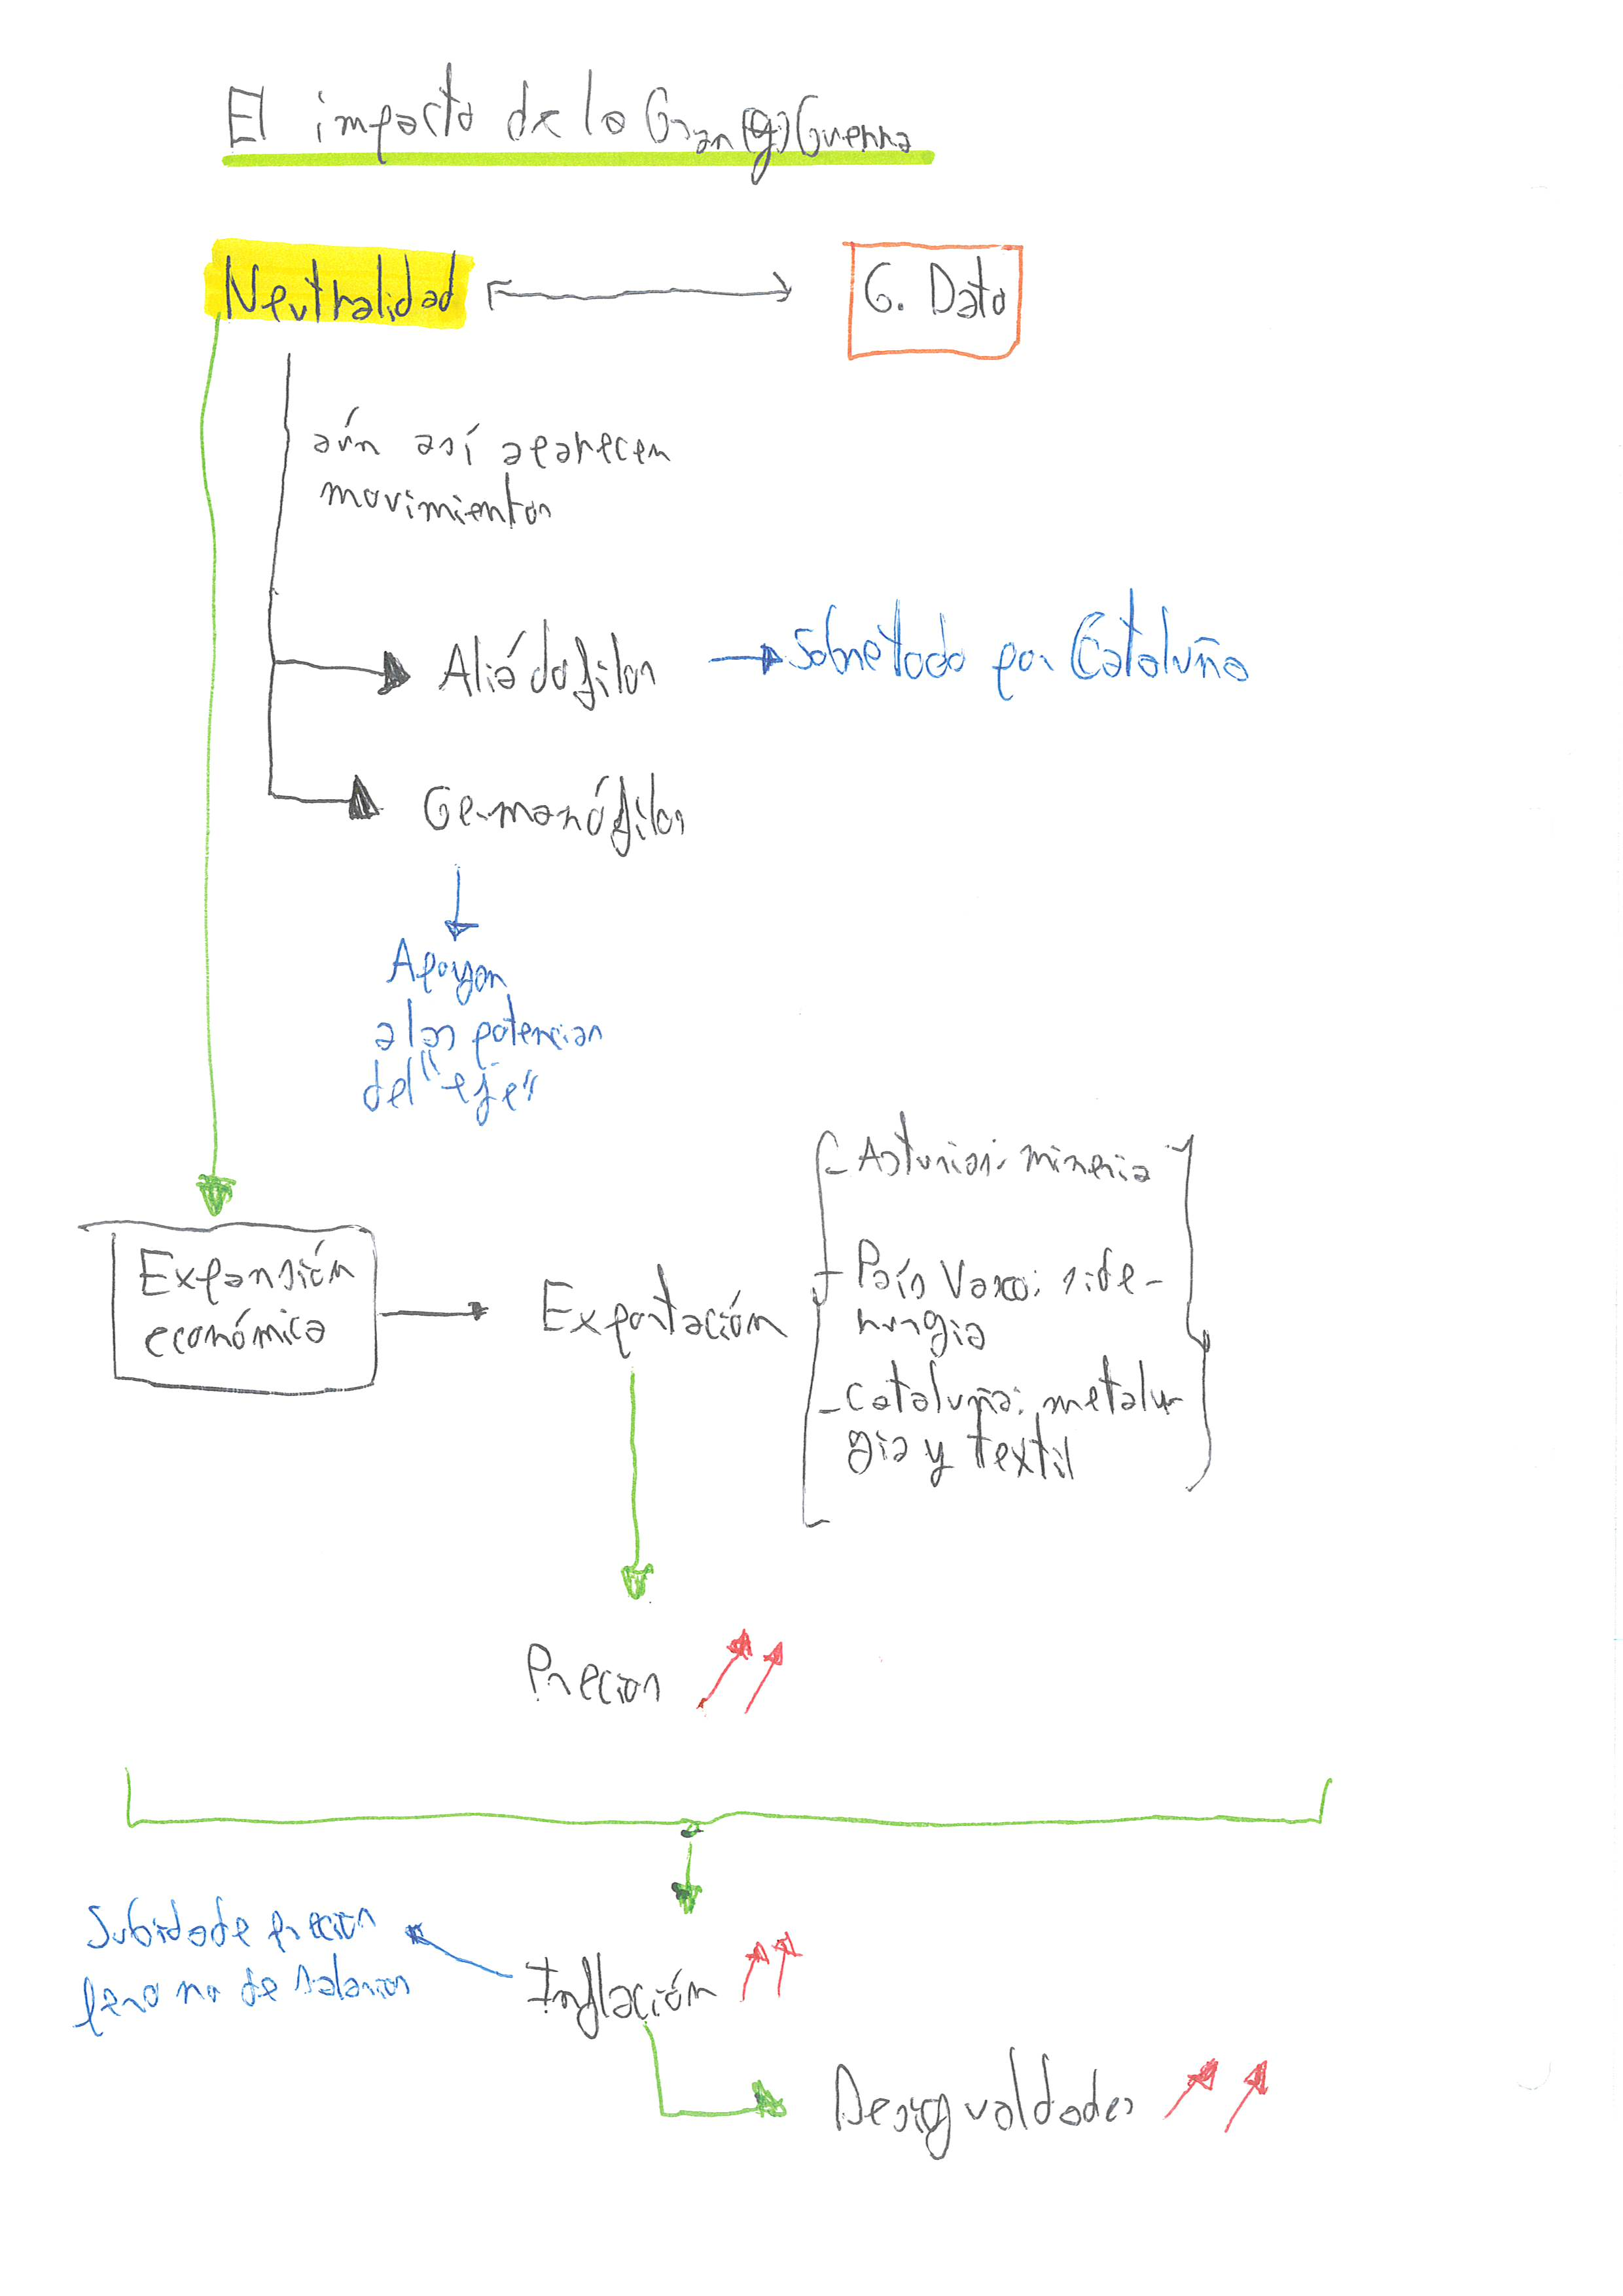 El impacto de la Gran (g) Guerra
Neutralidad
G. Dato
aún así aparecen
movimientos
Aliádofilos
Sobretodo por Cataluña
Germanófilos
Apoyan
a las potencias
del "eje"
- Asturias: mineria
Expansión
económica
Exportación
- País Vasco: side-
rurgia
- Cataluña: metalur-
gia y textil
Precios
Subida de precios
pero no de salarios
Inflación
Desigualdades